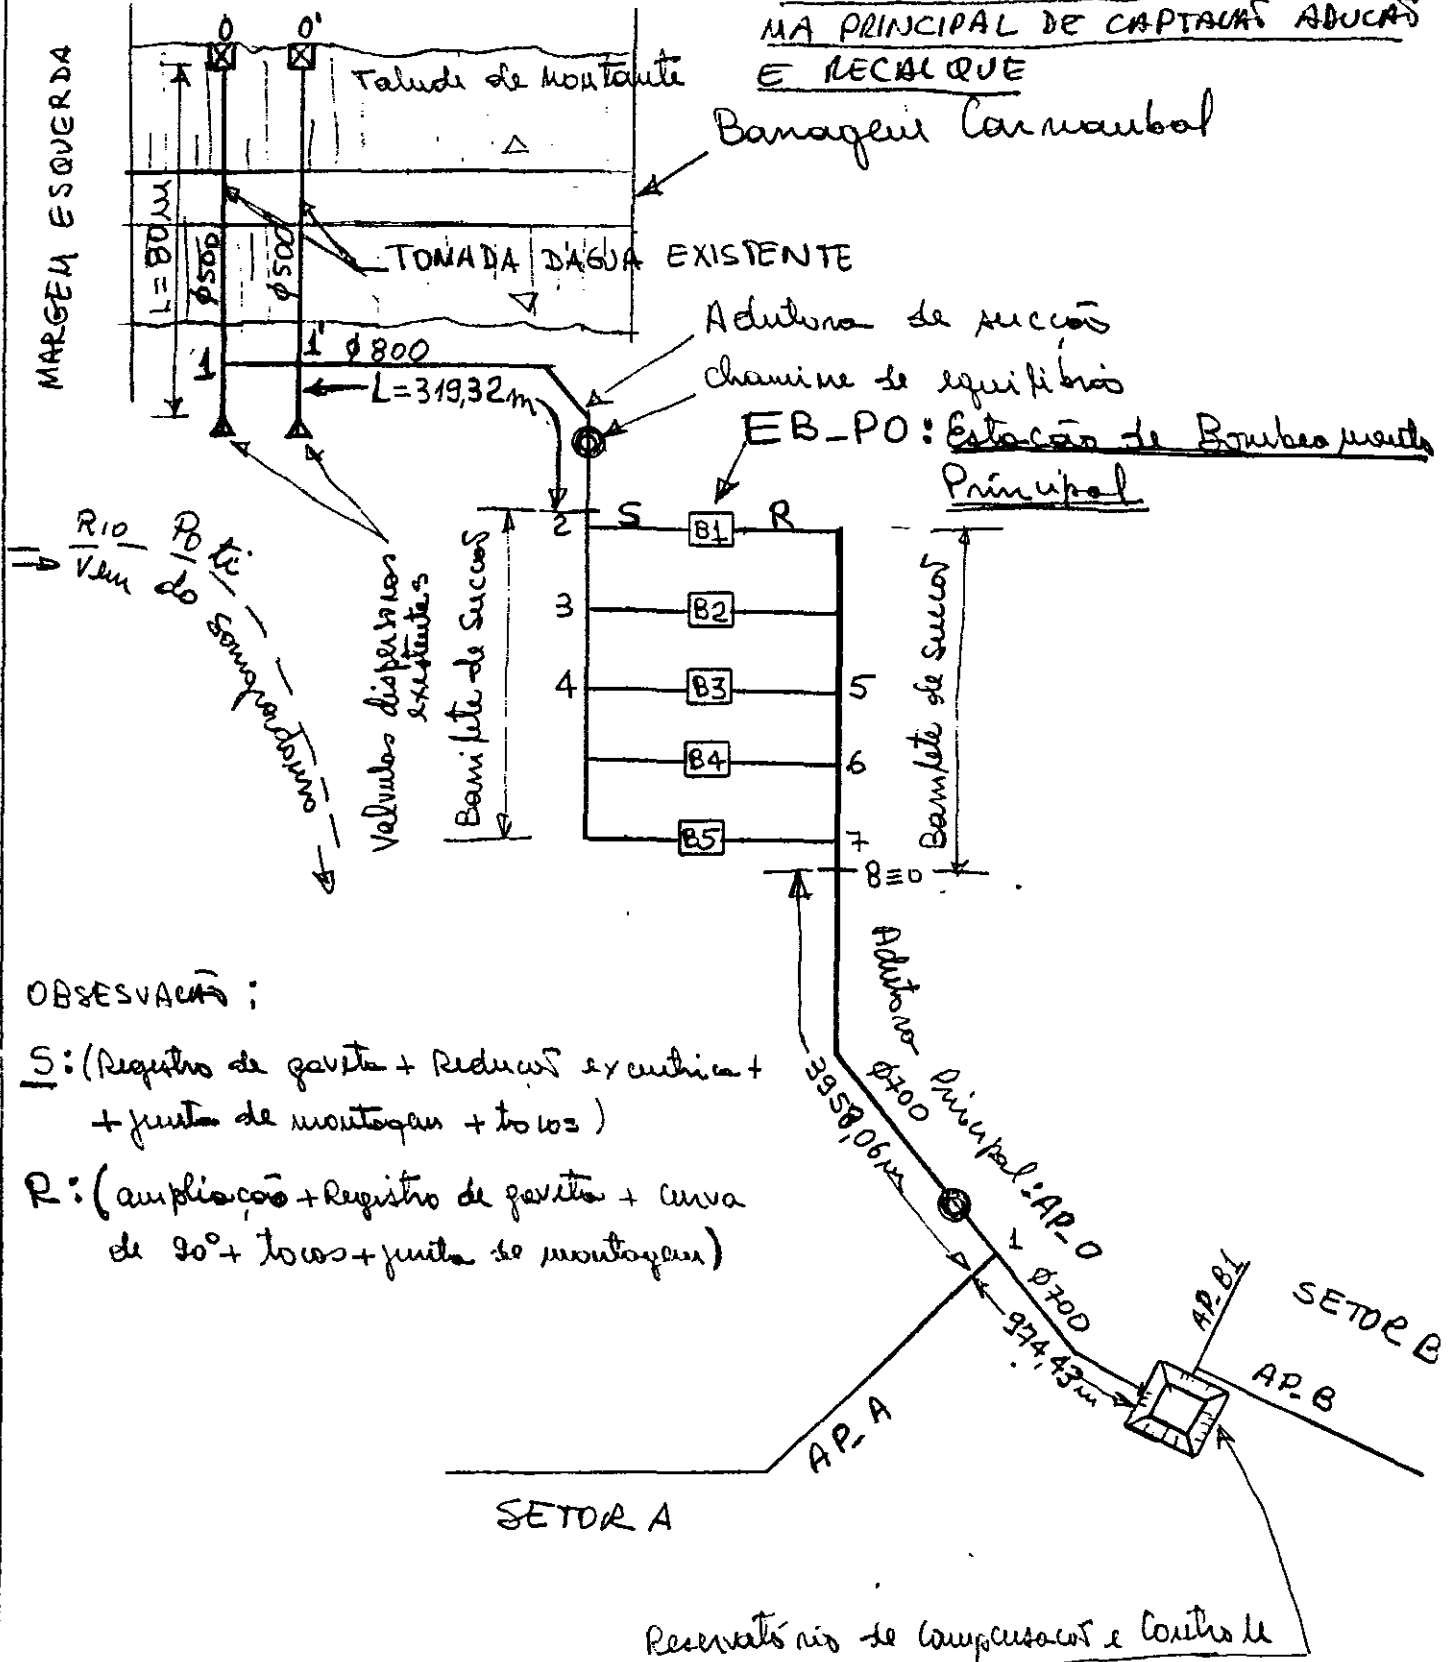 MA PRINCIPAL DE CAPTACAÕ ADUCAÕ
E RECALQUE
0 0'
Talude de montante
Barragem Carnaubal
MARGEM ESQUERDA
L=80m
φ500
φ500
TOMADA D'AGUA EXISTENTE
Adutora de sucção
1 1' φ800
L=319,32m
chamine de equilibrio
EB_PO: Estação de Bombeamento
Principal
Rio Poti
Vem do
Valvulas dispersoras
existentes
Barrilete de Succaõ
2 S B1 R
3 B2
4 B3 5
B4 6
B5 7
8≡0
Barrilete de Succaõ
OBSESVACAÕ:
S: (Registro de gaveta + Reducaõ excentrica +
+ junta de montagem + tocos)
R: (ampliação + Registro de gaveta + curva
de 90° + tocos + junta de montagem)
Adutora Principal: AP_0
φ700
3958,06m
1
φ700
974,43m
AP_B1
SETOR B
AP_B
AP_A
SETOR A
Reservatório de Compensacaõ e Controle